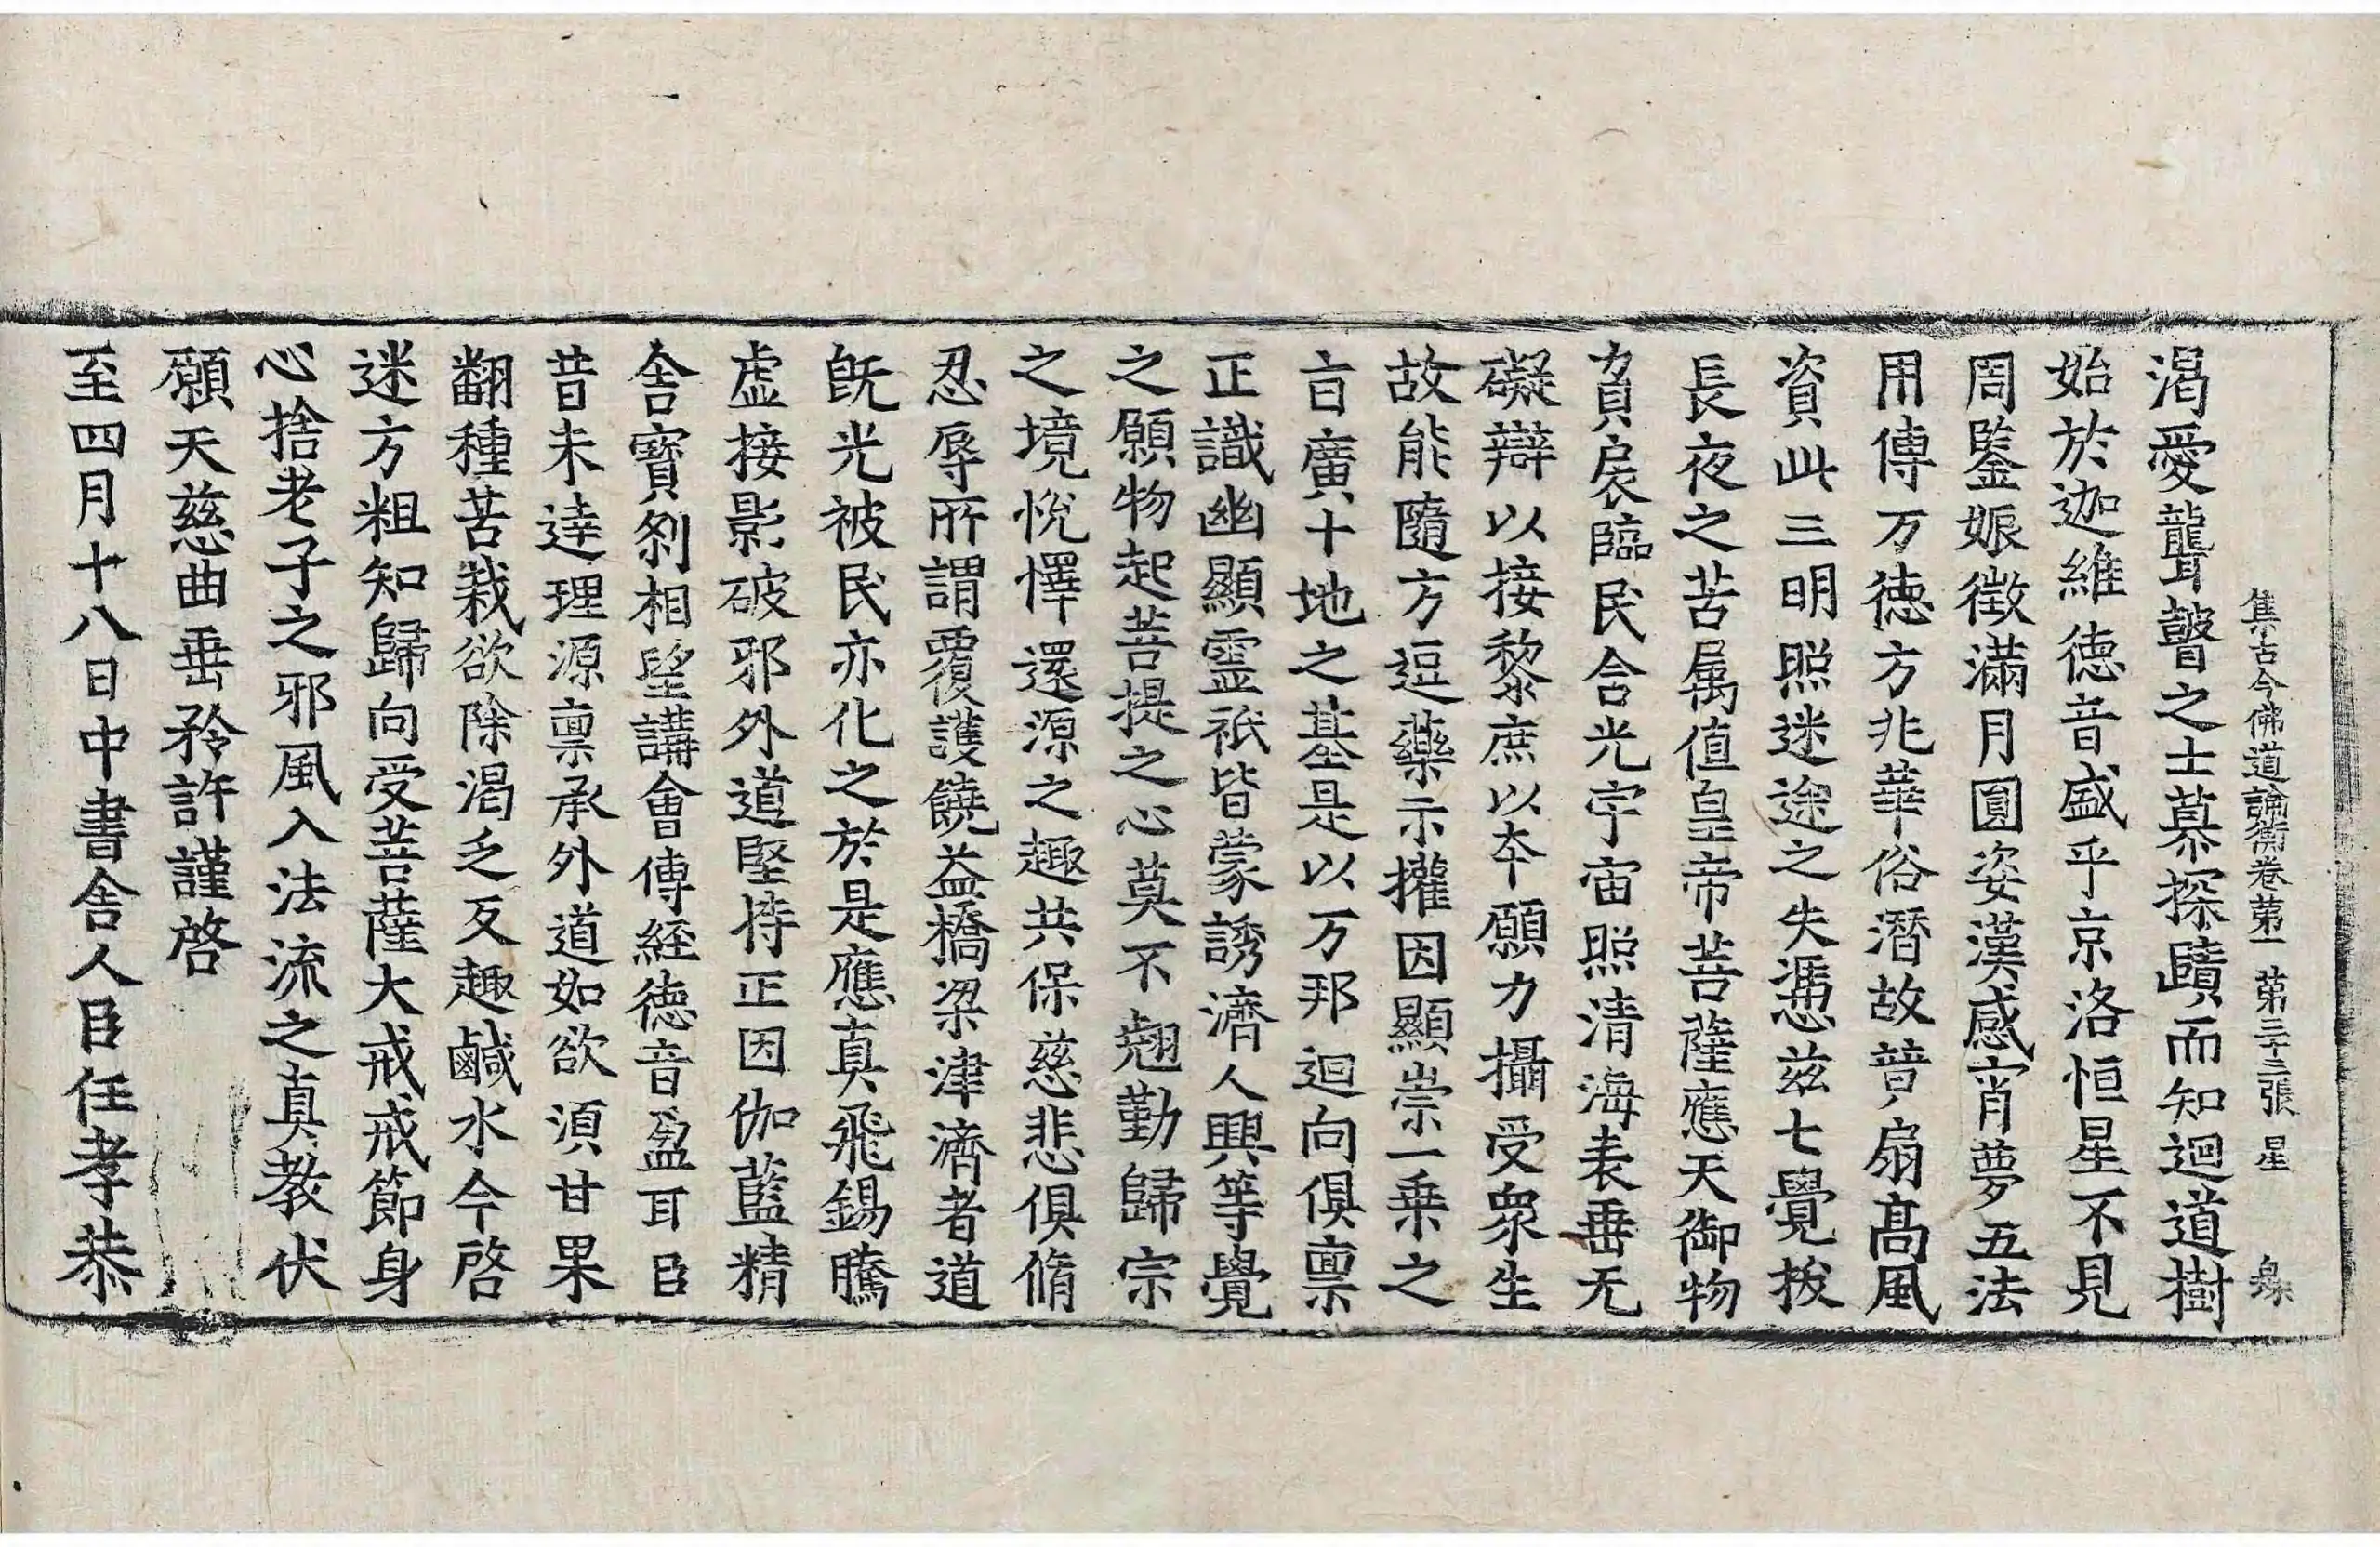 集古今佛道論衡卷第一 第三十三張 星
渴愛聾瞽之士慕探賾而知迴道樹
始於迦維德音盛乎京洛恒星不見
周鑒娠徵滿月圓姿漢感宵夢五法
用傳万德方兆華俗潛故普扇高風
資此三明照迷途之失憑兹七覺拔
長夜之苦属值皇帝菩薩應天御物
負扆臨民含光宇宙照清海表垂无
礙辯以接黎庶以本願力攝受衆生
故能隨方逗藥示攉因顯崇一乗之
㫖廣十地之基是以万邦迴向俱禀
正識幽顯霊祇皆蒙誘濟人興等覺
之願物起菩提之心莫不翹勤歸宗
之境悅懌還源之趣共保慈悲俱脩
忍辱所謂覆護饒益橋梁津濟者道
旣光被民亦化之於是應真飛錫騰
虛接影破邪外道堅持正因伽藍精
舍寶刹相望講會傳経德音盈耳臣
昔未達理源禀承外道如欲湏甘果
翻種苦栽欲除渴乏反趣鹹水今啓
迷方粗知歸向受菩薩大戒戒節身
心捨老子之邪風入法流之真教伏
願天慈曲垂矜許謹啓
至四月十八日中書舍人臣任孝恭